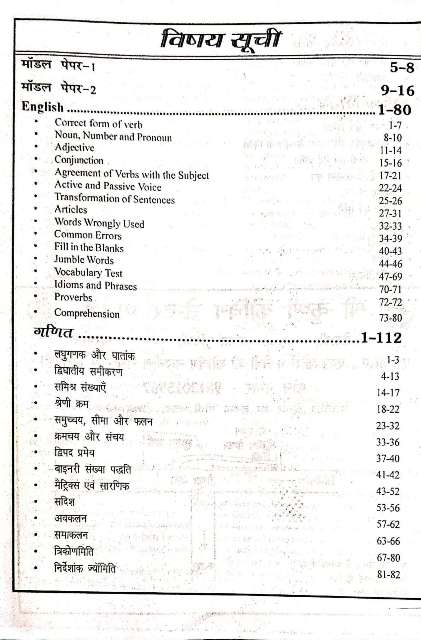 विषय सूची
मॉडल पेपर-1 5-8
मॉडल पेपर-2 9-16
English 1-80
• Correct form of verb 1-7
• Noun, Number and Pronoun 8-10
• Adjective 11-14
• Conjunction 15-16
• Agreement of Verbs with the Subject 17-21
• Active and Passive Voice 22-24
• Transformation of Sentences 25-26
• Articles 27-31
• Words Wrongly Used 32-33
• Common Errors 34-39
• Fill in the Blanks 40-43
• Jumble Words 44-46
• Vocabulary Test 47-69
• Idioms and Phrases 70-71
• Proverbs 72-72
• Comprehension 73-80
गणित 1-112
• लघुगणक और घातांक 1-3
• द्विघातीय समीकरण 4-13
• समिश्र संख्याएँ 14-17
• श्रेणी क्रम 18-22
• समुच्चय, सीमा और फलन 23-32
• क्रमचय और संचय 33-36
• द्विपद प्रमेय 37-40
• बाइनरी संख्या पद्धति 41-42
• मैट्रिक्स एवं सारणिक 43-52
• सदिश 53-56
• अवकलन 57-62
• समाकलन 63-66
• त्रिकोणमिति 67-80
• निर्देशांक ज्योमिति 81-82